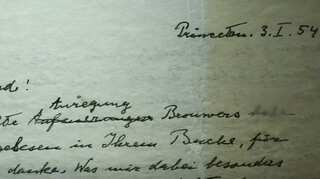 Princeton. 3. I. 54
nd!
Anregung
lte Brouwers habe
gelesen in Ihrem Buche, für
danke. Was mir dabei besonders